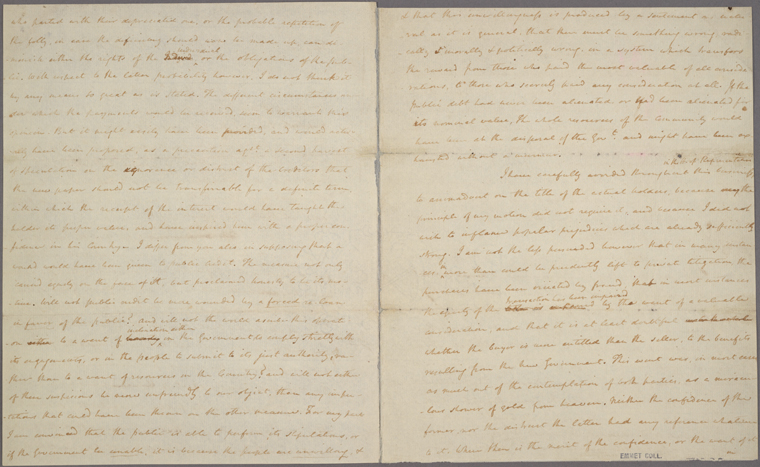 who parted with their depreciated one, or the probable repetition of
the folly, in case the deficiency should ever be made up, can di-
minish either the rights of the individual, or the obligations of the pub-
lic. With respect to the latter probability however, I do not think it
by any means so great as is stated. The different circumstances un-
der which the payments would be received, seem to warrant this
opinion. But it might easily have been provided, and would actu-
ally have been proposed, as a precaution agst. a second harvest
of speculation on the ignorance or distrust of the creditors that
the new paper should not be transferrable for a definite term,
within which the receipt of the interest would have taught the
holder its proper value, and have inspired him with a proper con-
fidence in his Country. I differ from you also in supposing that a
would have been given to public credit. The measure not only
carried equity on the face of it, but proclaimed honesty to be its mo-
tive. Will not public credit be more wounded by a forced loan
in favor of the public? and will not the world ascribe this
on to a want of inclination either in the Government to comply strictly with
its engagements, or in the people to submit to its just authority, ra-
ther than to a want of resources in the Country? and will not either
of these suspicions be more unfriendly to our object, than any impu-
tations that could have been thrown on the other measure? For my part
I am convinced that the public is able to perform its stipulations, or
if the Government be unable, it is because the people are unwilling, &
& that this unwillingness is produced by a sentiment as natu-
ral as it is general, that there must be something wrong, radi-
cally & morally & politically wrong, in a system which transfers
the reward from those who paid the most valuable of all consider-
ations, to those who scarcely paid any consideration at all. If the
public debt had never been alienated or had been alienated for
its nominal value, the whole resources of the Community would
have been at the disposal of the Govt. and might have been ex-
hausted without a murmur.
in the H. of Representatives
I have carefully avoided throughout this business,
to animadvert on the title of the actual holders, because the
principle of my motion did not require it, and because I did not
wish to inflame popular prejudices which are already sufficiently
strong. I am not the less persuaded however that in many instan-
ces, more than could be prudently left to private litigation the
purchases have been vitiated by fraud, that in most instances
the equity of the transaction has been impaired by the want of a valuable
consideration, and that it is at least doubtful
whether the buyer is more entitled than the seller, to the benefits
resulting from the new Government. This event was, in most cases
as much out of the contemplation of both parties, as a miracu-
lous shower of gold from heaven. Neither the confidence of the
former, nor the distrust of the latter had any reference whatever
to it. Where then is the merit of the confidence, or the want of it
EMMET COLL.